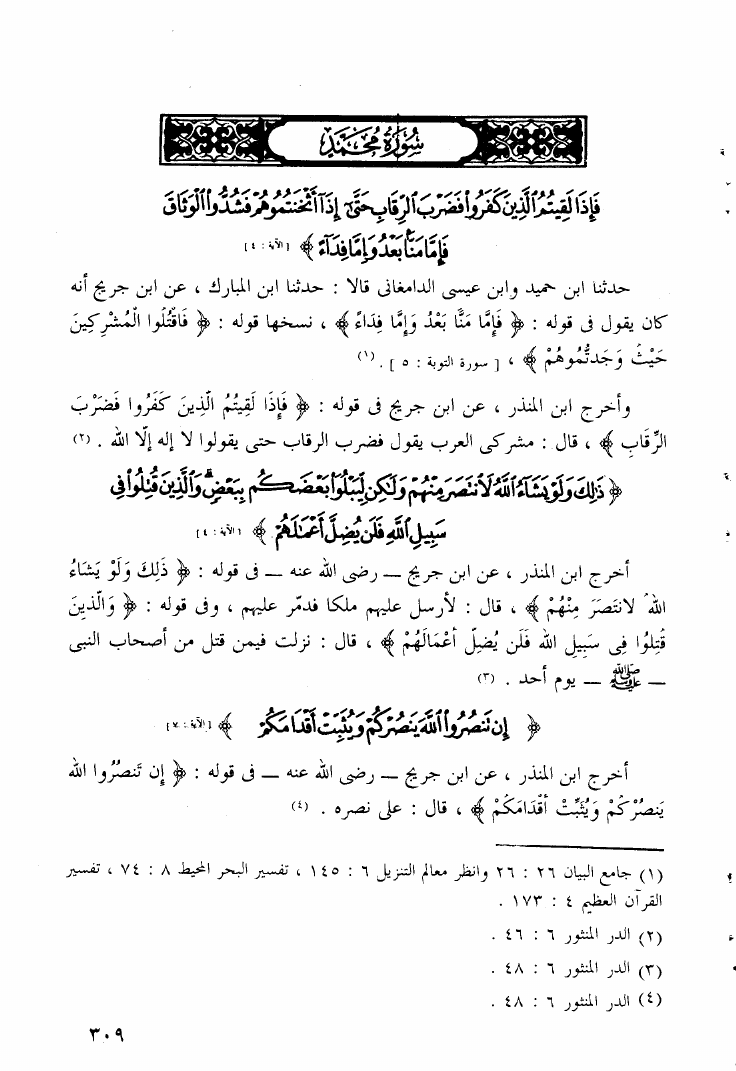 سُورَةُ مُحَمَّد
فَإِذَا لَقِيتُمُ ٱلَّذِينَ كَفَرُوا۟ فَضَرْبَ ٱلرِّقَابِ حَتَّىٰٓ إِذَآ أَثْخَنتُمُوهُمْ فَشُدُّوا۟ ٱلْوَثَاقَ
فَإِمَّا مَنًّۢا بَعْدُ وَإِمَّا فِدَآءً ﴾ [الآية : ٤]
حدثنا ابن حميد وابن عيسى الدامغانى قالا : حدثنا ابن المبارك ، عن ابن جريج أنه
كان يقول فى قوله : ﴿ فَإِمَّا مَنًّا بَعْدُ وَإِمَّا فِدَاءً ﴾ ، نسخها قوله : ﴿ فَاقْتُلُوا الْمُشْرِكِينَ
حَيْثُ وَجَدتُّمُوهُمْ ﴾ ، [ سورة التوبة : ٥ ] . (١)
وأخرج ابن المنذر ، عن ابن جريج فى قوله : ﴿ فَإِذَا لَقِيتُمُ الَّذِينَ كَفَرُوا فَضَرْبَ
الرِّقَابِ ﴾ ، قال : مشركى العرب يقول فضرب الرقاب حتى يقولوا لا إله إلّا الله . (٢)
﴿ ذَٰلِكَ وَلَوْ يَشَآءُ ٱللَّهُ لَٱنتَصَرَ مِنْهُمْ وَلَٰكِن لِّيَبْلُوَا۟ بَعْضَكُم بِبَعْضٍ ۗ وَٱلَّذِينَ قُتِلُوا۟ فِى
سَبِيلِ ٱللَّهِ فَلَن يُضِلَّ أَعْمَٰلَهُمْ ﴾ [الآية : ٤]
أخرج ابن المنذر ، عن ابن جريج — رضى الله عنه — فى قوله : ﴿ ذَلِكَ وَلَوْ يَشَاءُ
اللهُ لانتَصَرَ مِنْهُمْ ﴾ ، قال : لأرسل عليهم ملكا فدمّر عليهم ، وفى قوله : ﴿ وَالَّذِينَ
قُتِلُوا فِى سَبِيلِ الله فَلَن يُضِلَّ أَعْمَالَهُمْ ﴾ ، قال : نزلت فيمن قتل من أصحاب النبى
— ﷺ — يوم أحد . (٣)
﴿ إِن تَنصُرُوا۟ ٱللَّهَ يَنصُرْكُمْ وَيُثَبِّتْ أَقْدَامَكُمْ ﴾ [الآية : ٧]
أخرج ابن المنذر ، عن ابن جريج — رضى الله عنه — فى قوله : ﴿ إِن تَنصُرُوا الله
يَنصُرْكُمْ وَيُثَبِّتْ أَقْدَامَكُمْ ﴾ ، قال : على نصره . (٤)
(١) جامع البيان ٢٦ : ٢٦ وانظر معالم التنزيل ٦ : ١٤٥ ، تفسير البحر المحيط ٨ : ٧٤ ، تفسير
القرآن العظيم ٤ : ١٧٣ .
(٢) الدر المنثور ٦ : ٤٦ .
(٣) الدر المنثور ٦ : ٤٨ .
(٤) الدر المنثور ٦ : ٤٨ .
٣٠٩